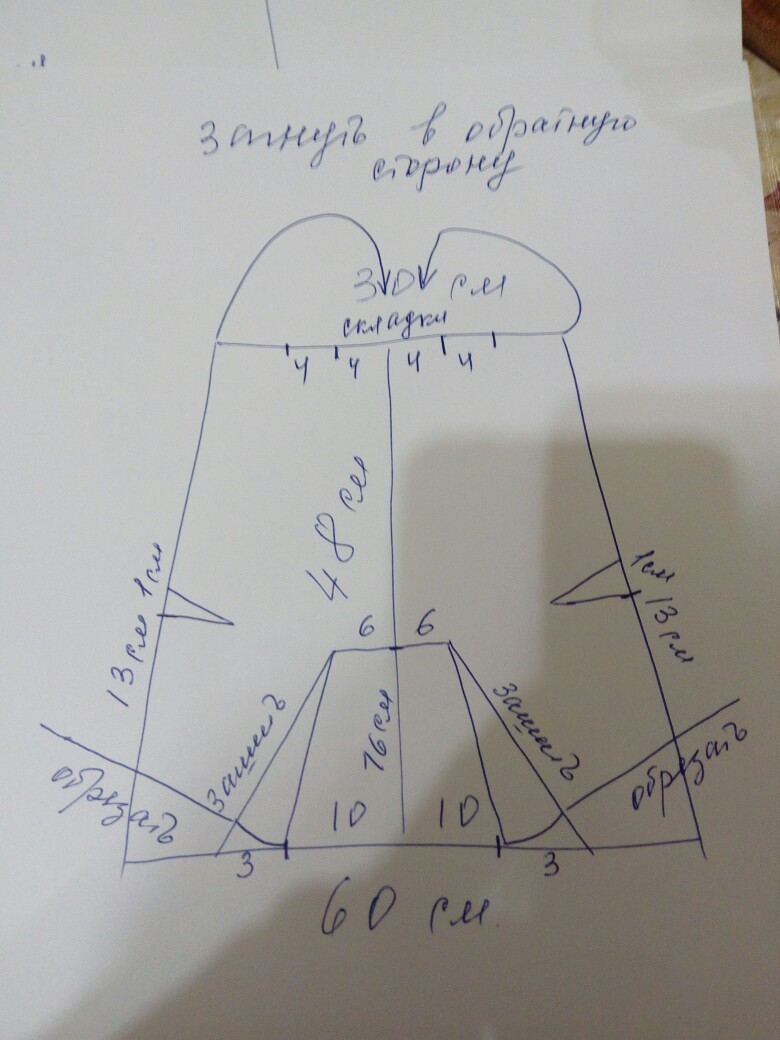 загнуть в обратную
сторону
30 см
складки
4 4 4 4
48 см
1 см
13 см
1 см
13 см
6 6
зашить
зашить
16 см
обрезать
обрезать
10 10
3 3
60 см.